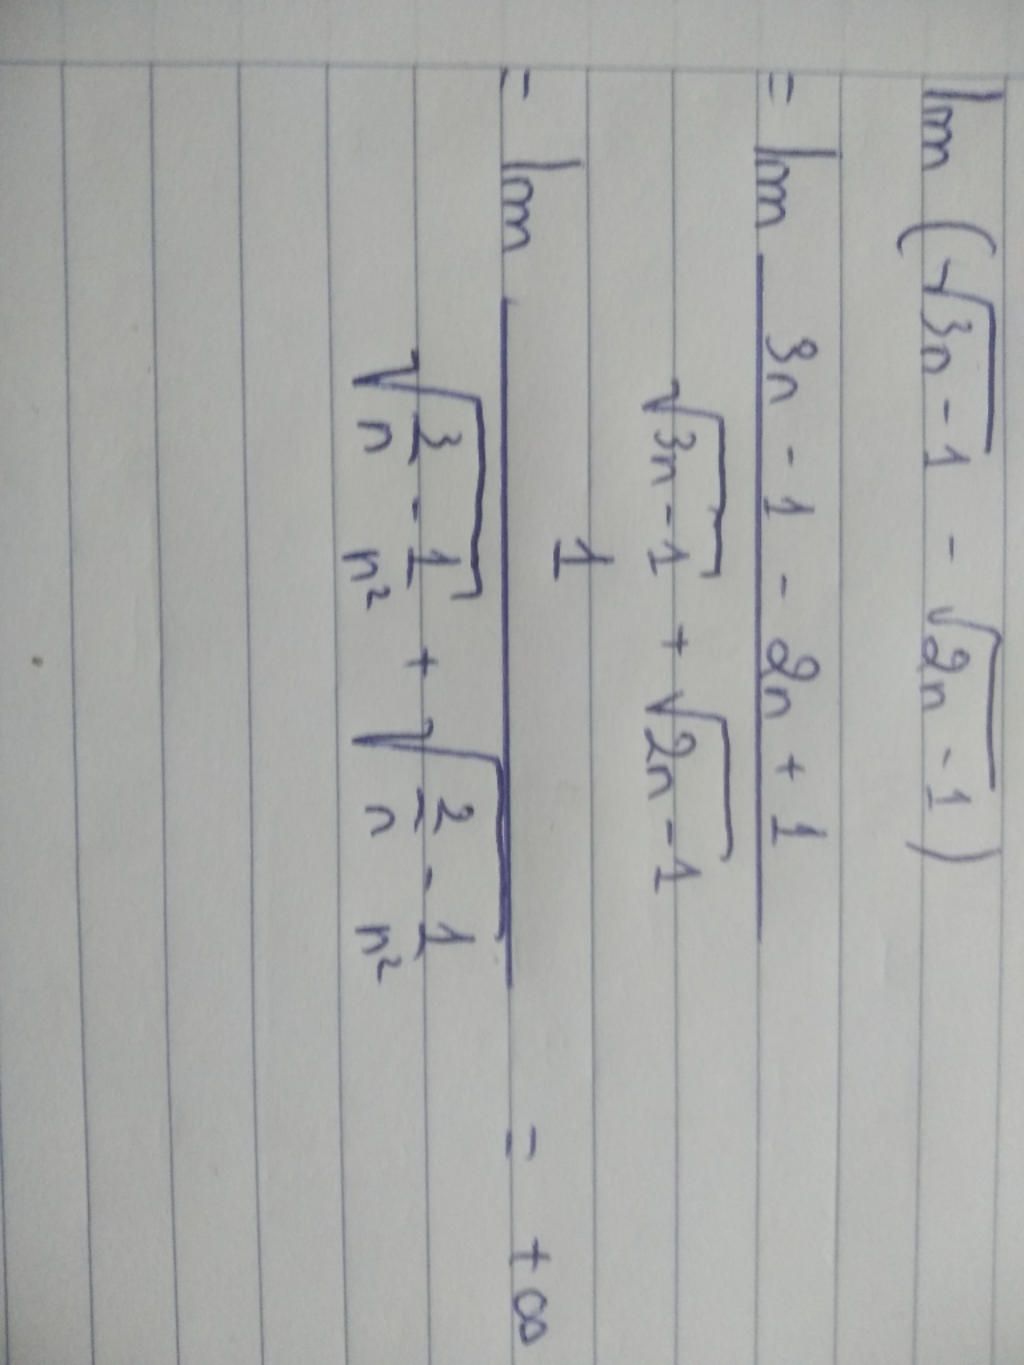 lim (√(3n - 1) - √(2n - 1))
= lim (3n - 1 - 2n + 1) / (√(3n - 1) + √(2n - 1))
= lim 1 / (√(3/n - 1/n²) + √(2/n - 1/n²)) = +∞